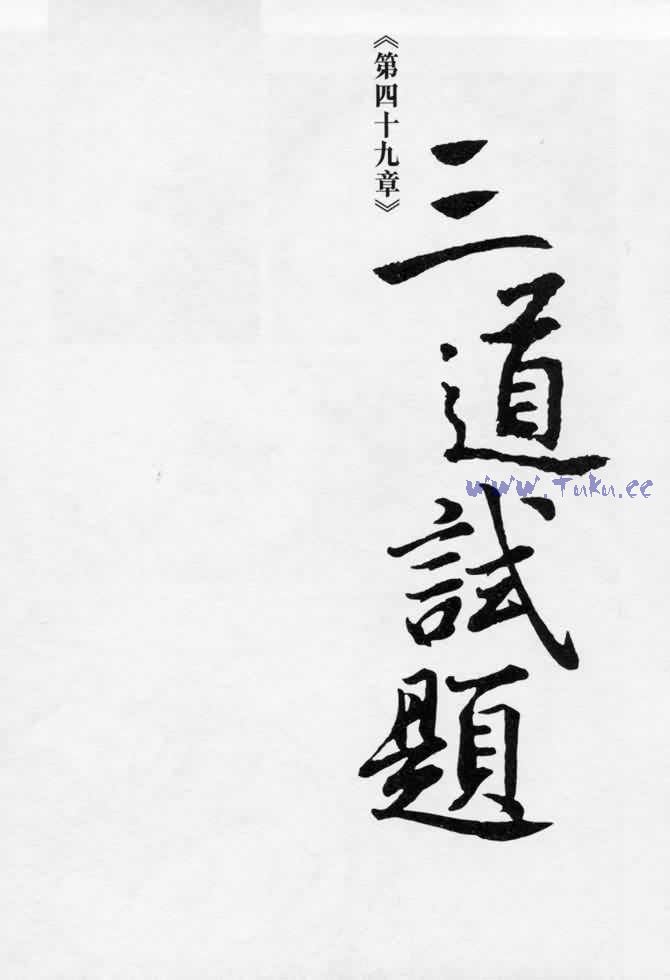 三道試題
《第四十九章》
www.Tuku.cc